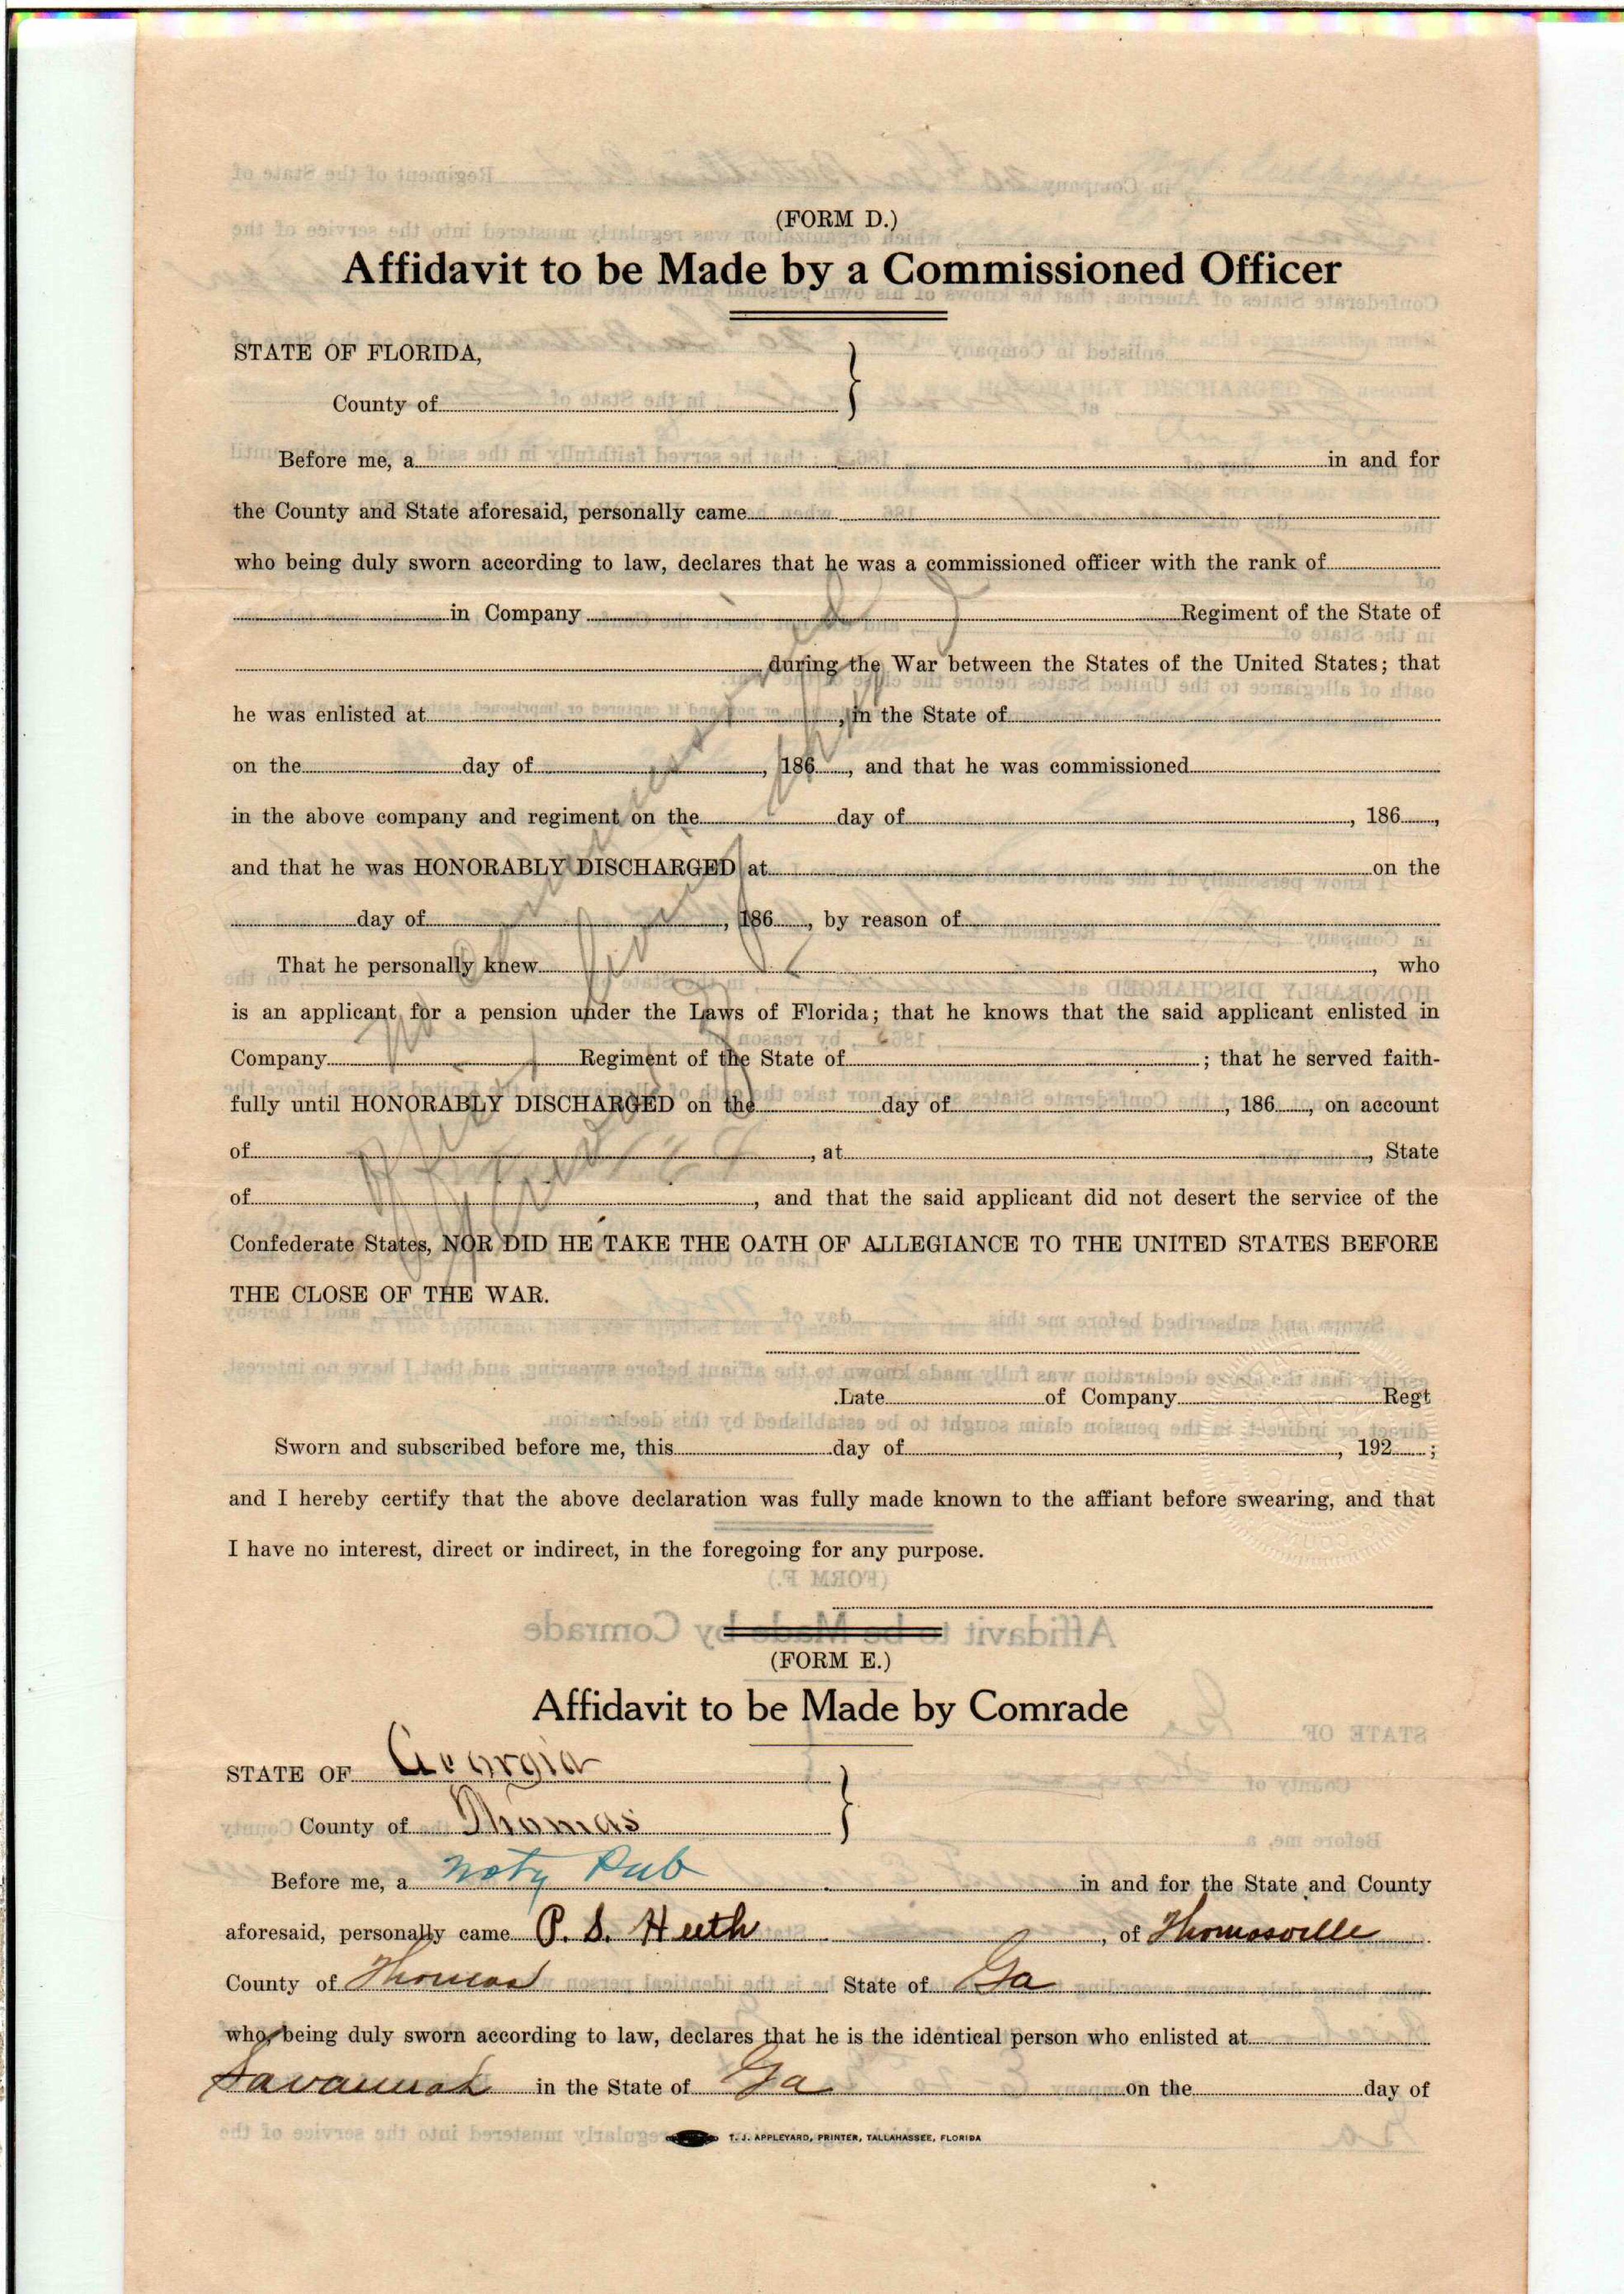 (FORM D.)
Affidavit to be Made by a Commissioned Officer
STATE OF FLORIDA,
County of
Before me, a in and for
the County and State aforesaid, personally came
who being duly sworn according to law, declares that he was a commissioned officer with the rank of
in Company Regiment of the State of
during the War between the States of the United States; that
he was enlisted at , in the State of
on the day of , 186 , and that he was commissioned
in the above company and regiment on the day of , 186 ,
and that he was HONORABLY DISCHARGED at on the
day of , 186 , by reason of
That he personally knew , who
is an applicant for a pension under the Laws of Florida; that he knows that the said applicant enlisted in
Company Regiment of the State of ; that he served faith-
fully until HONORABLY DISCHARGED on the day of , 186 , on account
of , at , State
of , and that the said applicant did not desert the service of the
Confederate States, NOR DID HE TAKE THE OATH OF ALLEGIANCE TO THE UNITED STATES BEFORE
THE CLOSE OF THE WAR.
Late of Company Regt
Sworn and subscribed before me, this day of , 192 ;
and I hereby certify that the above declaration was fully made known to the affiant before swearing, and that
I have no interest, direct or indirect, in the foregoing for any purpose.
(FORM E.)
Affidavit to be Made by Comrade
STATE OF Georgia
County of Thomas
Before me, a Noty Pub in and for the State and County
aforesaid, personally came P. S. Heeth , of Thomasville
County of Thomas State of Ga
who, being duly sworn according to law, declares that he is the identical person who enlisted at
Savannah in the State of Ga on the day of
T. J. APPLEYARD, PRINTER, TALLAHASSEE, FLORIDA